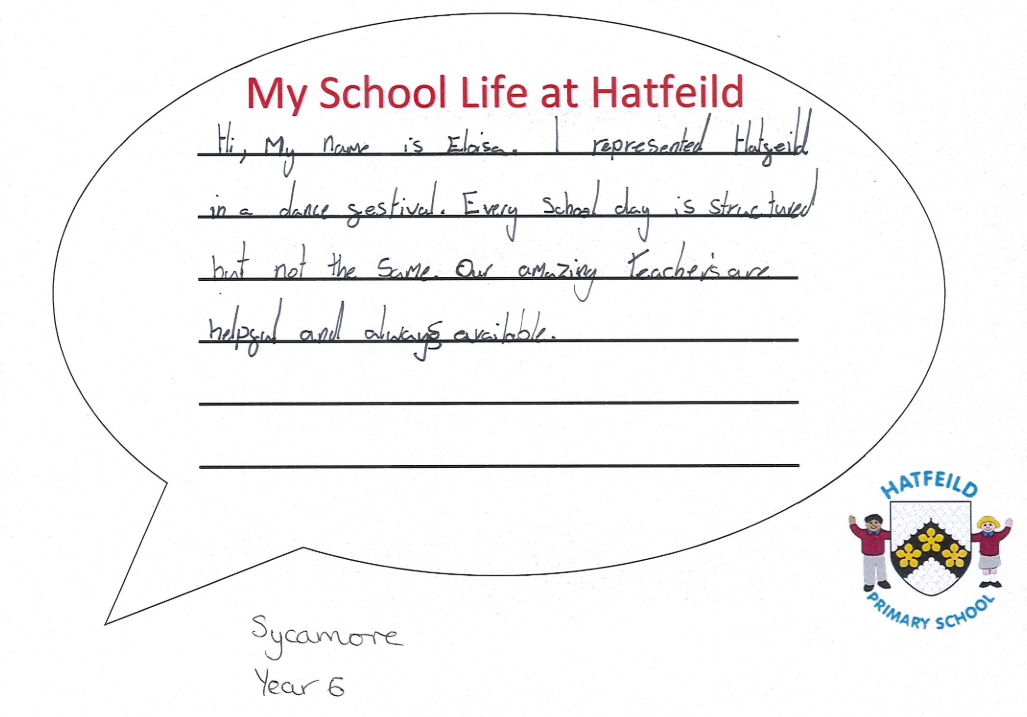 My School Life at Hatfeild
Hi, My name is Eloisa. I represented Hatfeild
in a dance festival. Every School day is structured
but not the same. Our amazing teacher's are
helpful and always available.
HATFEILD
PRIMARY SCHOOL
Sycamore
Year 6